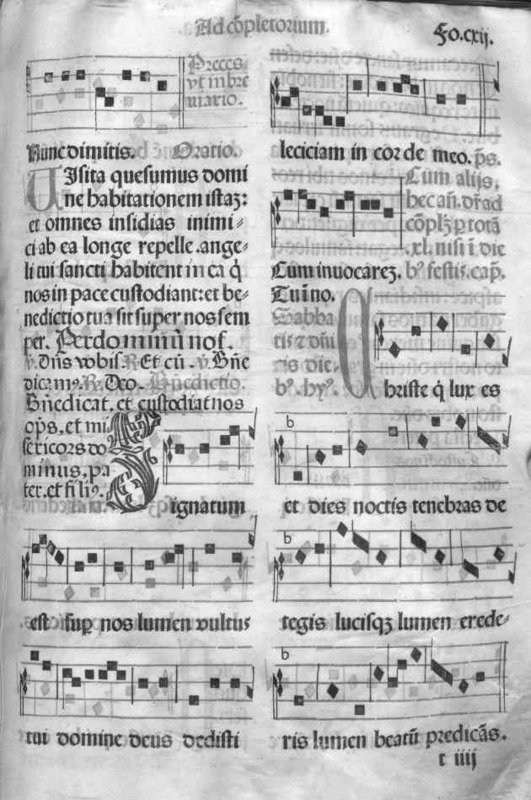 Ad cõpletorium.
Fo.cxij.
Preces
vt in bre
uiario.
Nunc dimitis. Oratio.
UIsita quesumus domi
ne habitationem istaz:
et omnes insidias inimi/
ci ab ea longe repelle. ange/
li tui sancti habitent in ea q̃
nos in pace custodiant: et be/
nedictio tua sit super nos sem
per. Per dominũ nos.
v. Dñs vobis. R. Et cũ. v. Bñe
dicam9. R. Deo. Bñedictio.
Bñedicat. et custodiat nos
ops. et mi
sericors do
minus. pa
ter. et fili9.
Signatum
est sup nos lumen vultus
tui domine deus dedisti
leciciam in corde meo. ps.
Cum alijs.
Cum inuocarez. b9 festis. cap.
Tu in no.
Sabba
tis z dñi
cis die/
b9. hy9.
Christe q̃ lux es
et dies noctis tenebras de
tegis lucisqz lumen crede/
ris lumen beatũ predicãs.
t iiij